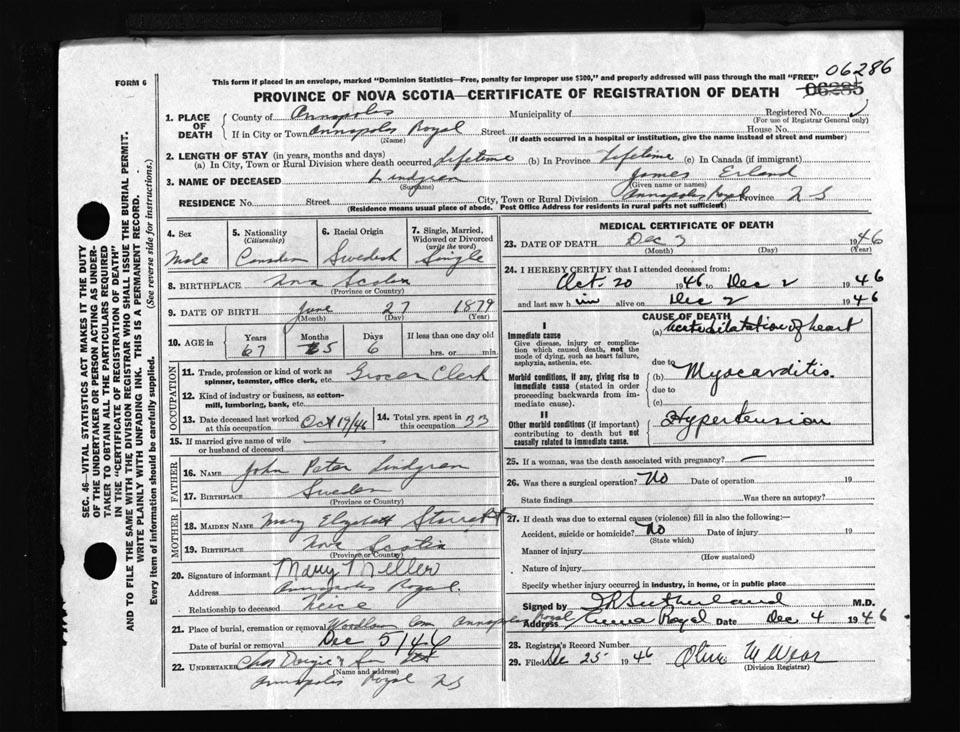 06286
FORM 6
This form if placed in an envelope, marked "Dominion Statistics—Free, penalty for improper use $300," and properly addressed will pass through the mail "FREE"
06285
PROVINCE OF NOVA SCOTIA—CERTIFICATE OF REGISTRATION OF DEATH
SEC. 46—VITAL STATISTICS ACT MAKES IT THE DUTY
OF THE UNDERTAKER OR PERSON ACTING AS UNDER-
TAKER TO OBTAIN ALL THE PARTICULARS REQUIRED
IN THE "CERTIFICATE OF REGISTRATION OF DEATH"
AND TO FILE THE SAME WITH THE DIVISION REGISTRAR WHO SHALL ISSUE THE BURIAL PERMIT.
WRITE PLAINLY WITH UNFADING INK. THIS IS A PERMANENT RECORD.
Every item of information should be carefully supplied. (See reverse side for instructions.)
1. PLACE OF DEATH
County of Annapolis Municipality of Registered No.
(For use of Registrar General only)
If in City or Town Annapolis Royal Street House No.
(Name) (If death occurred in a hospital or institution, give the name instead of street and number)
2. LENGTH OF STAY (in years, months and days)
(a) In City, Town or Rural Division where death occurred Lifetime (b) In Province Lifetime (c) In Canada (if immigrant)
3. NAME OF DECEASED Lindgren James Erland
(Surname) (Given name or names)
RESIDENCE No. Street City, Town or Rural Division Annapolis Royal Province N S
(Residence means usual place of abode. Post Office Address for residents in rural parts not sufficient)
4. Sex Male
5. Nationality (Citizenship) Canadian
6. Racial Origin Swedish
7. Single, Married, Widowed or Divorced (write the word) Single
8. BIRTHPLACE Nova Scotia
(Province or Country)
9. DATE OF BIRTH June 27 1879
(Month) (Day) (Year)
10. AGE in Years Months Days If less than one day old
67 5 6 hrs. or min.
OCCUPATION
11. Trade, profession or kind of work as
spinner, teamster, office clerk, etc. Grocer Clerk
12. Kind of industry or business, as cotton-
mill, lumboring, bank, etc.
13. Date deceased last worked at this occupation Oct 19/46
14. Total yrs. spent in this occupation 33
15. If married give name of wife
or husband of deceased
FATHER
16. NAME John Peter Lindgren
17. BIRTHPLACE Sweden
(Province or Country)
MOTHER
18. MAIDEN NAME Mary Elizabeth
19. BIRTHPLACE Nova Scotia
(Province or Country)
20. Signature of informant Mary
Address Annapolis Royal.
Relationship to deceased Neice
21. Place of burial, cremation or removal Woodlawn Cem Annapolis Royal
Date of burial or removal Dec 5/46
22. UNDERTAKER Chas & Son
(Name and address)
Annapolis Royal N S
MEDICAL CERTIFICATE OF DEATH
23. DATE OF DEATH Dec 3 1946
(Month) (Day)
24. I HEREBY CERTIFY that I attended deceased from:
Oct. 20 1946 to Dec 2 1946
and last saw him alive on Dec 2 1946
CAUSE OF DEATH
I
Immediate cause (a) Acute dilatation of heart
Give disease, injury or complica-
tion which caused death, not the
mode of dying, such as heart failure,
asphyxia, asthenia, etc.
due to
Morbid conditions, if any, giving rise to (b) Myocarditis.
immediate cause (stated in order due to
proceeding backwards from im-
mediate cause). (c)
II
Other morbid conditions (if important) Hypertension
contributing to death but not
causally related to immediate cause.
25. If a woman, was the death associated with pregnancy? —
26. Was there a surgical operation? No Date of operation 19
State findings Was there an autopsy?
27. If death was due to external causes (violence) fill in also the following:—
Accident, suicide or homicide? No Date of injury 19
(State which)
Manner of injury
(How sustained)
Nature of injury
Specify whether injury occurred in industry, in home, or in public place
Signed by Sutherland M.D.
Address Anna Royal Date Dec 4 1946
28. Registrar's Record Number
29. Filed Dec 25 1946 Olive M Wear
(Division Registrar)